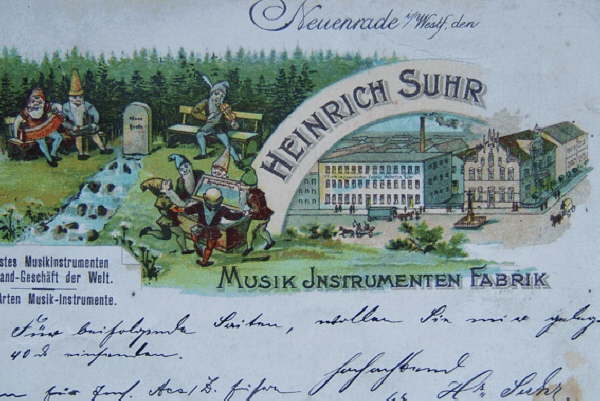 Neuenrade i/Westf, den
HEINRICH SUHR
MUSIK INSTRUMENTEN FABRIK
stes Musikinstrumenten
and-Geschäft der Welt.
Arten Musik-Instrumente.
Für beifolgende Saiten, wollen Sie mir
40 einsenden.
hochachtend
für
Hr. Suhr.